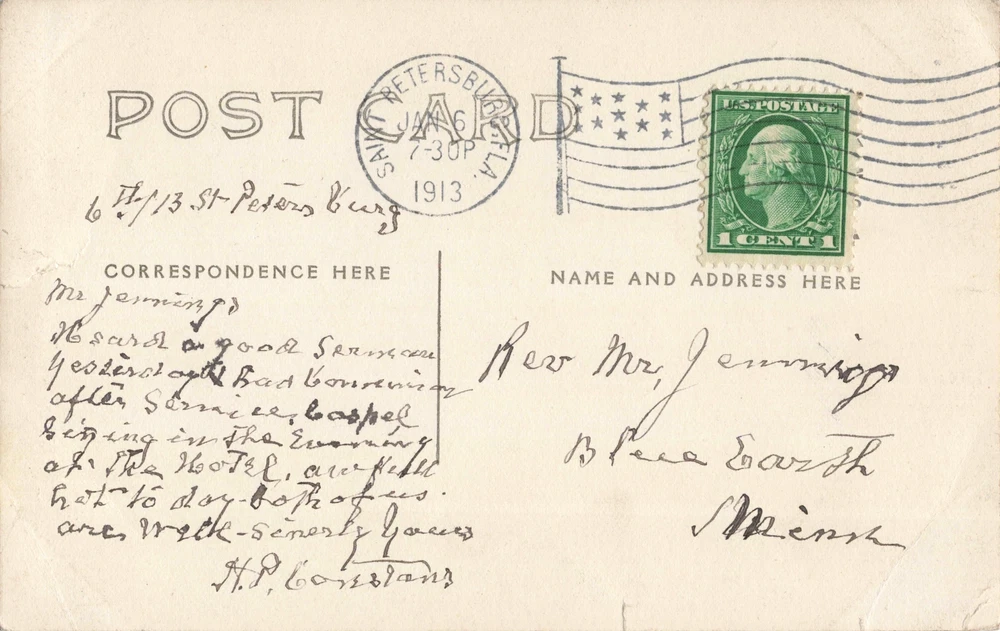 POST CARD
SAINT PETERSBURG, FLA.
JAN 6
7-30P
1913
U.S. POSTAGE
1 CENT 1
6th/13 St Peters Burg
CORRESPONDENCE HERE
NAME AND ADDRESS HERE
Mr Jennings
Heard a good Serman
Yesterday & had Comunion
after Service, Gospel
Singing in the Evening
at the Hotel,
hot to day - both of us
are Well - Sinerly Yours
H. P. Constans
Rev Mr, Jennings
Blue Earth
Minn